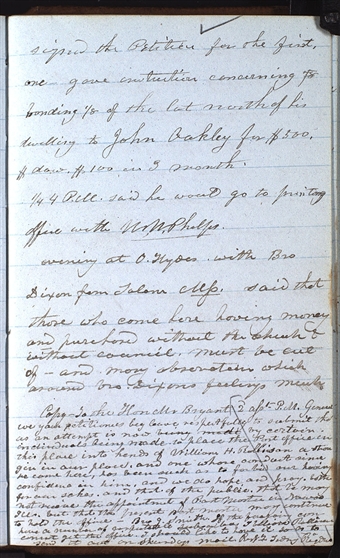 signed the Petition for the first.
one gave instruction concerning
bonding ½ of the lot north of his
dwelling to John Oakley for $500.
$ down. $100 in 3 month.
¼ 4 P.M. said he would go to printing
office with W W Phelps.
evening at O. Hydes. with Bro
Dixon from Salem Mss. said that
those who come here having money
and purchased without the church &
without council. must be cut
of - and many observations which
around Bro Dixons feelings much
Copy - To the Hon Mr Bryant 2 asst P.M. General
we your petitioners beg leave respectfully to submit that
as an attempt is now being made by certain
individuals to place the Post office in
this place into hands of William H. Rollinson a
in our place, and one whose conduct
he came here, has been such as to forbid our having
confidence in him and we do hope and pray, both
for our sakes, and that of the public, that he
not receive the appointment of Post Master in Nauvoo
Ill. but that the present Post master may continue
to hold the office